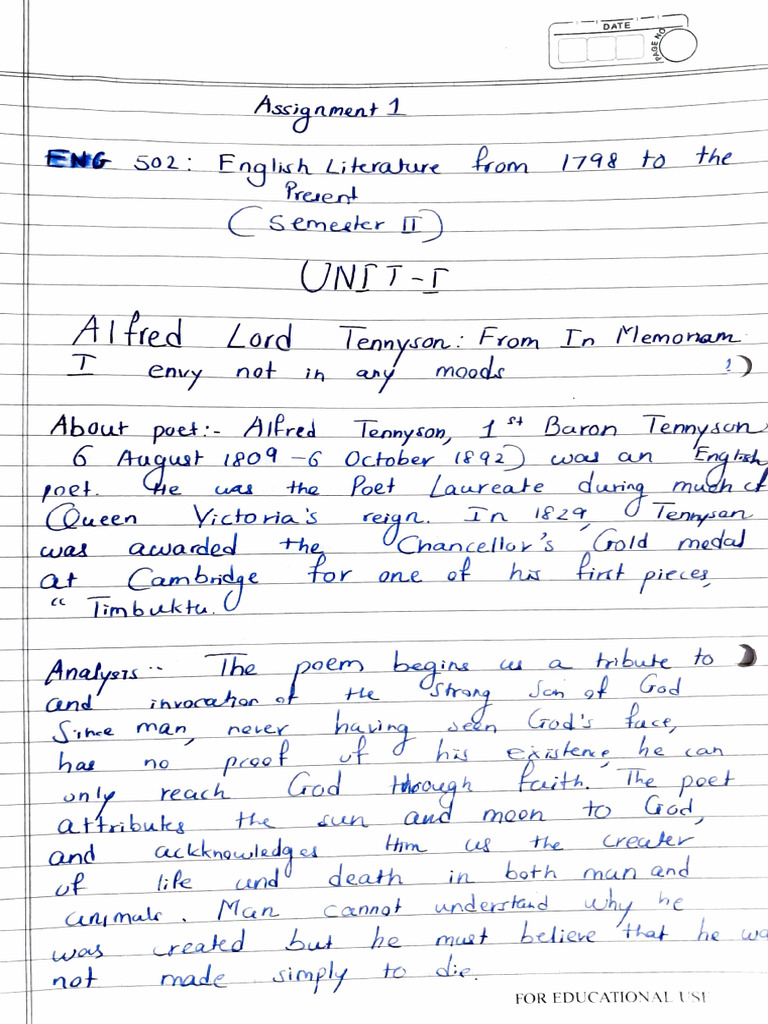 DATE
PAGE NO
Assignment 1
ENG 502: English Literature from 1798 to the
Present
(Semester II)
UNIT-I
Alfred Lord Tennyson: From In Memoriam
I envy not in any moods
About poet:- Alfred Tennyson, 1st Baron Tennyson
6 August 1809 - 6 October 1892) was an English
poet. He was the Poet Laureate during much of
Queen Victoria's reign. In 1829, Tennyson
was awarded the Chancellor's Gold medal
at Cambridge for one of his first pieces,
"Timbuktu.
Analysis:- The poem begins as a tribute to
and invocation of the strong son of God
Since man, never having seen God's face,
has no proof of his existence, he can
only reach God through faith. The poet
attributes the sun and moon to God,
and ackknowledges Him as the creater
of life and death in both man and
animals. Man cannot understand why he
was created but he must believe that he wa
not made simply to die.
FOR EDUCATIONAL USE